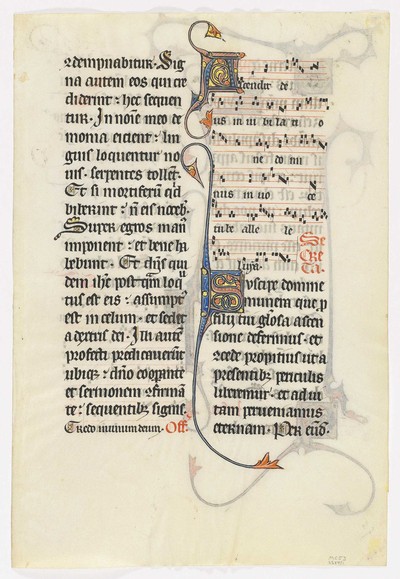 demp nabitur. Sig
na autem eos qui cre
diderint: hec sequen
tur. In noie meo de
monia eicient: lin
guis loquentur no
uis. serpentes tollet.
Et si mortiferu qd
biberint: n eis noceb.
Super egros man
imponent: et bene ha
bebunt. Et dns qui
dem ihc post qm loq
tus est eis: assumpt
est in celum. et sedet
a dextris dei. Illi aute
profecti predicauerut
ubiqz: dno coopante
et sermonem ofirma
te: sequentibz signis.
Credo in unum deum. Off.
Ascendit de
us in iu bi la ti o
ne do mi
nus in uo ce
tu be alle le
luya.
Se
cre
ta.
Suscipe domine
munera que p
filij tui gliosa ascen
sione deferimus. et
cede propitius ut a
presentibz periculis
liberemur. et ad ui
tam perueniamus
eternam. Per eud.